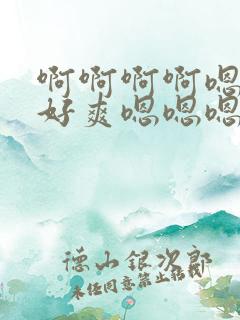 啊啊啊啊嗯
好爽嗯嗯嗯
德山银次郎
未经同意禁止转载